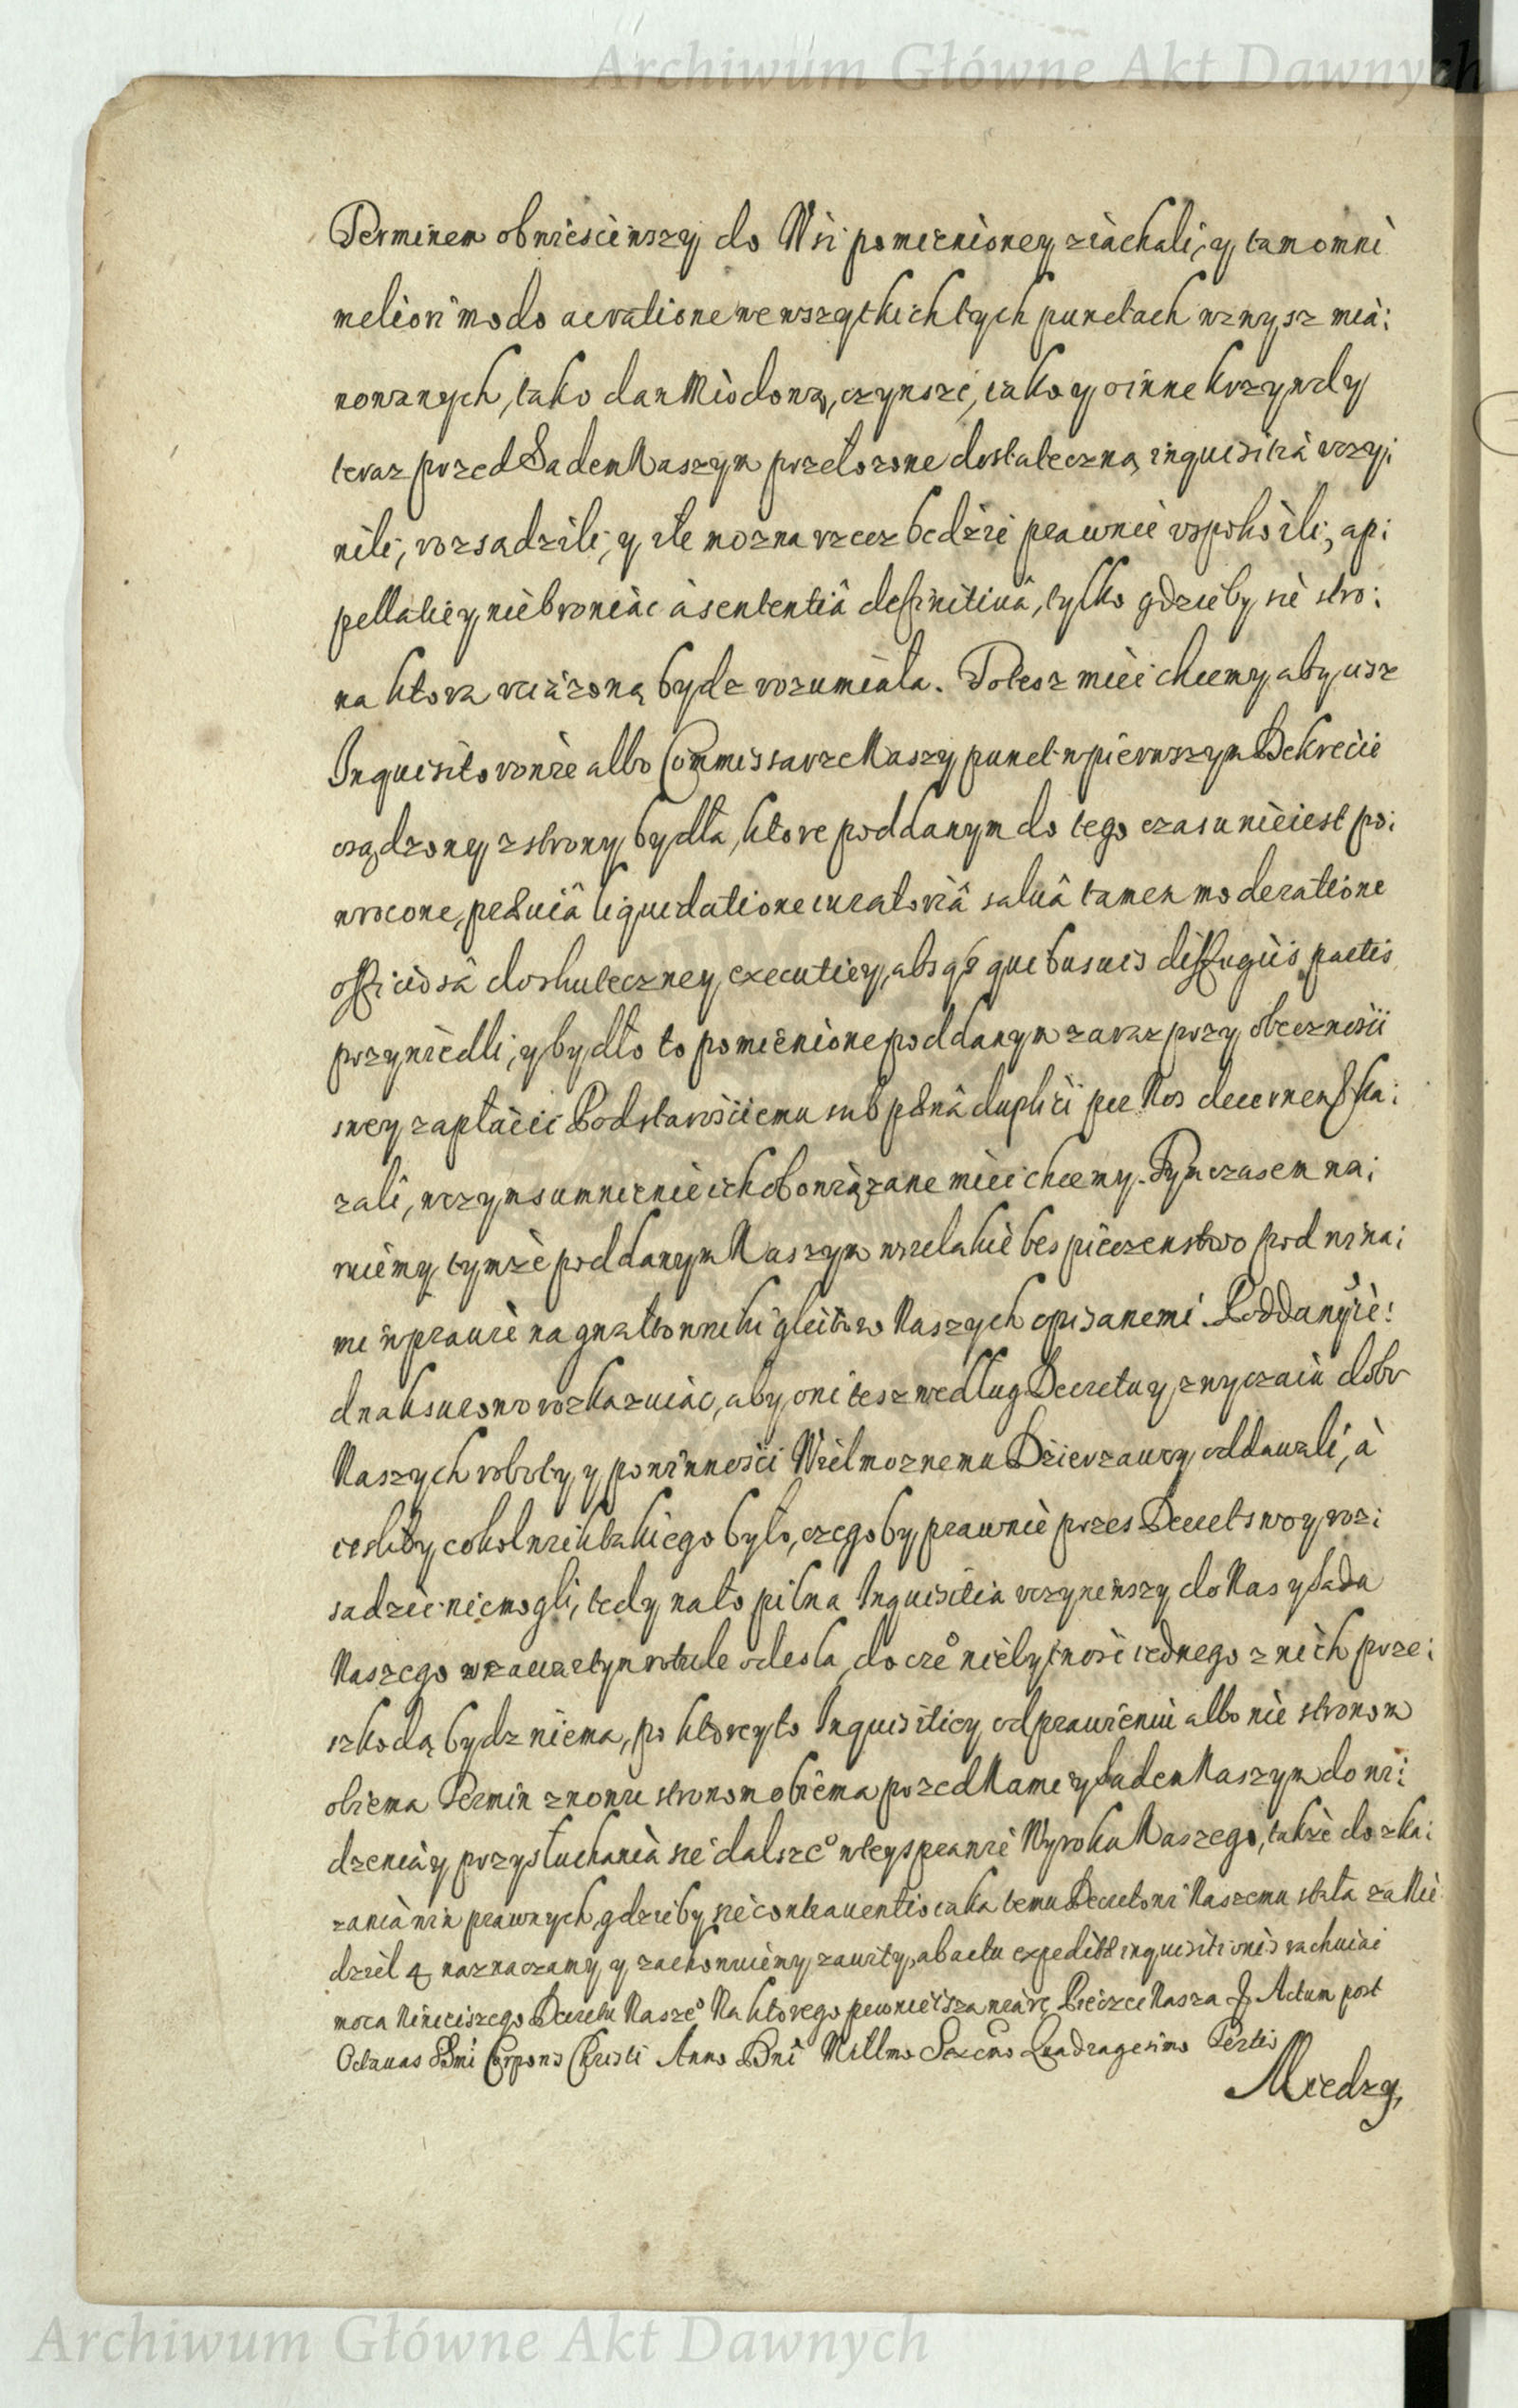 Archiwum Główne Akt Dawnych
Terminem obwiesciwszy do Wsi pomienioney ziachali, y tam omni
meliori modo ac ratione we wszytkich tych punctach wzwysz mia:
nowanych, tako dan Miodową, czynsze, iako y o inne krzywdy
teraz przed Sadem Naszym przełozone dostateczną inquisitia vczy:
nili, rozsadzili, y ile mozna rzecz bedzie prawnie vspokoili, ap:
pellatiey niebroniac à sententiâ definitiuâ, tylko gdzieby sie stro:
na ktora vciązoną bydz rozumiała. Potesz miec chcemy, aby cisz
Inquisitorowie albo Commissarze Naszy punct w pierwszym Dekrecie
osądzony z strony bydła, ktore poddanym do tego czasu nieiest po:
wrocone, præuiâ liquidatione iuratoriâ saluâ tamen moderatione
officiosâ do skuteczney executiey, absq3 quibusuis diffugiis partis
przywiedli, y bydło to pomienione poddanym zaraz przy obecznosci
swey zapłacic Podstarosciemu sub pænâ duplici per Nos decernen ska:
zali, w czym sumnienie ich obowiązane miec chcemy. Tym czasem na:
miemy tymze poddanym Naszym wszelakie bespieczenstwo pod wina:
mi w prawie na gwałtowniki gleitow Naszych opisanemi. Poddanym ie:
dnak surowo rozkazuiąc, aby oni tesz według Decretu y zwyczaiu dobr
Naszych roboty y powinnosci Wielmoznemu Dzierzawcy oddawali, à
iesliby cokolwiek takiego było, czegoby prawnie przes Decret swoy roz:
sadzic niemogli, tedy na to pilna Inquisitia vczyniwszy do Nas y Sadu
Naszego w zawartym rotule odesla, do cze⁰ niebytnosc iednego z nich prze:
szkodą bydz niema, po ktorey to Inquisitiey odprawieniu albo nie stronom
obiema Termin znowu stronom obiema przed Nami y Sadem Naszym do wi:
dzenia y przysłuchania sie dalsze⁰ w tey sprawie Wyroku Naszego, także do ska:
zania win prawnych, gdzieby sie contrauentio iaka temu Decretowi Naszemu stała za Nie
dziel 4 naznaczamy y zachowuiemy zawity, ab actu expeditæ inquisitionis rachuiac
moca Ninieiszego Decretu Nasze⁰ Na ktorego pewnieisza wiarę Pieczec Nasza &. Actum post
Octauas SSmi Corporis Christi Anno Dni Millmo Sexcno Quadragesimo Tertio
Miedzy,
Archiwum Główne Akt Dawnych